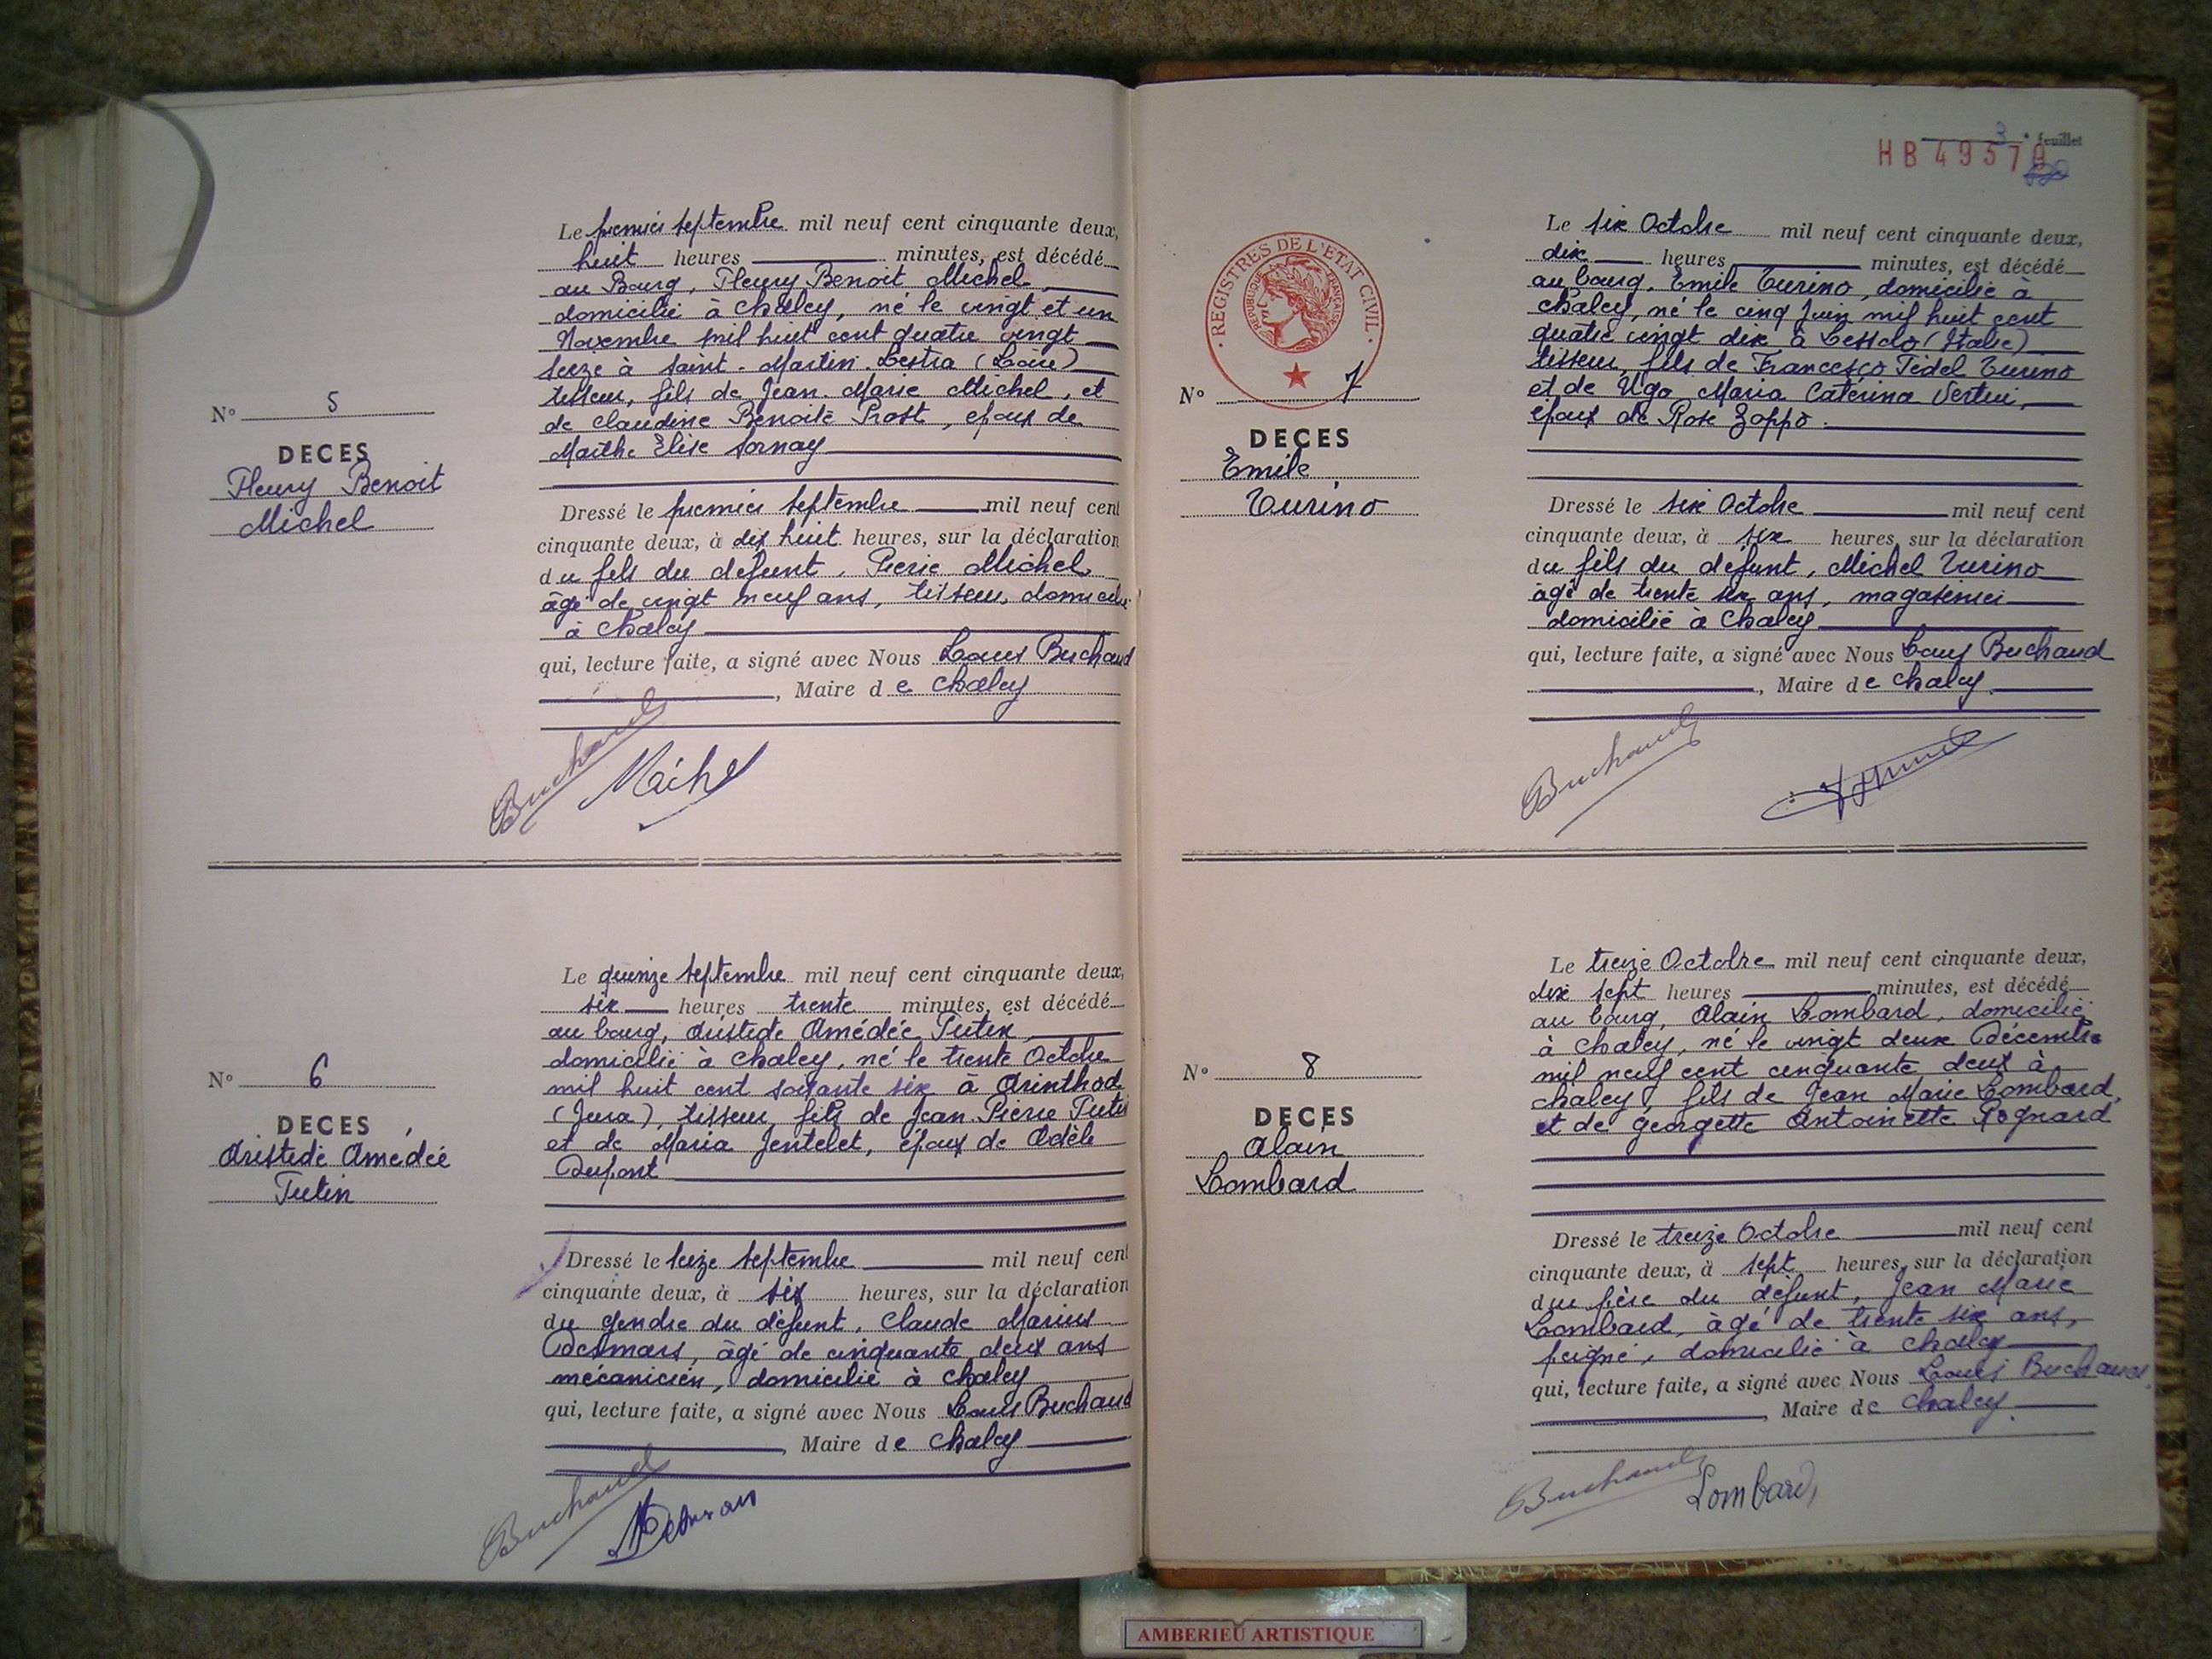 Le premier septembre mil neuf cent cinquante deux,
huit heures minutes, est décédé
au Bourg, Fleury Benoit Michel
domicilié à Chaley, né le vingt et un
Novembre mil huit cent quatre vingt
seize à Saint-Martin-Lestra (Loire)
tisseur, fils de Jean-Marie Michel, et
de Claudine Benoite Prost, epoux de
Marthe Elise Sornay
N° 5
DECES
Fleury Benoit
Michel
Dressé le premier septembre mil neuf cent
cinquante deux, à dix huit heures, sur la déclaration
du fils du défunt, Pierre Michel
âgé de vingt neuf ans, tisseur, domicilié
à Chaley
qui, lecture faite, a signé avec Nous Louis Buchaud
, Maire de Chaley
Buchaud
Michel
Le quinze septembre mil neuf cent cinquante deux,
six heures trente minutes, est décédé
au bourg, Aristide Amédée Putin
domicilié à Chaley, né le trente Octobre
mil huit cent soixante six à Arinthod
(Jura), tisseur, fils de Jean Pierre Putin
et de Maria Jentelet, époux de Adèle
Dupont
N° 6
DECES
Aristide Amédée
Putin
Dressé le seize septembre mil neuf cent
cinquante deux, à six heures, sur la déclaration
du gendre du défunt, Claude Marius
Desmars, âgé de cinquante deux ans
mécanicien, domicilié à Chaley
qui, lecture faite, a signé avec Nous Louis Buchaud
, Maire de Chaley
Buchaud
3e feuillet
HB 49370
REGISTRES DE L'ETAT CIVIL
REPUBLIQUE FRANÇAISE
Le six Octobre mil neuf cent cinquante deux,
dix heures minutes, est décédé
au bourg, Emile Turino, domicilié à
Chaley, né le cinq Juin mil huit cent
quatre vingt dix à Lessolo (Italie)
tisseur, fils de Francesco Fédel Turino
et de Ugo Maria Catérina
époux de Rose Zoppo.
N° 7
DECES
Emile
Turino
Dressé le six Octobre mil neuf cent
cinquante deux, à six heures, sur la déclaration
du fils du défunt, Michel Turino
âgé de trente six ans, magasinier
domicilié à Chaley
qui, lecture faite, a signé avec Nous Louis Buchaud
, Maire de Chaley
Buchaud
Le treize Octobre mil neuf cent cinquante deux,
dix sept heures minutes, est décédé
au bourg, Alain Lombard, domicilié
à Chaley, né le vingt deux Décembre
mil neuf cent cinquante deux à
Chaley, fils de Jean Marie Lombard,
et de Georgette Antoinette Rognard
N° 8
DECES
Alain
Lombard
Dressé le treize Octobre mil neuf cent
cinquante deux, à sept heures, sur la déclaration
du père du défunt, Jean Marie
Lombard, âgé de trente six ans,
domicilié à Chaley
qui, lecture faite, a signé avec Nous Louis Buchaud
, Maire de Chaley
Buchaud
Lombard
AMBERIEU ARTISTIQUE